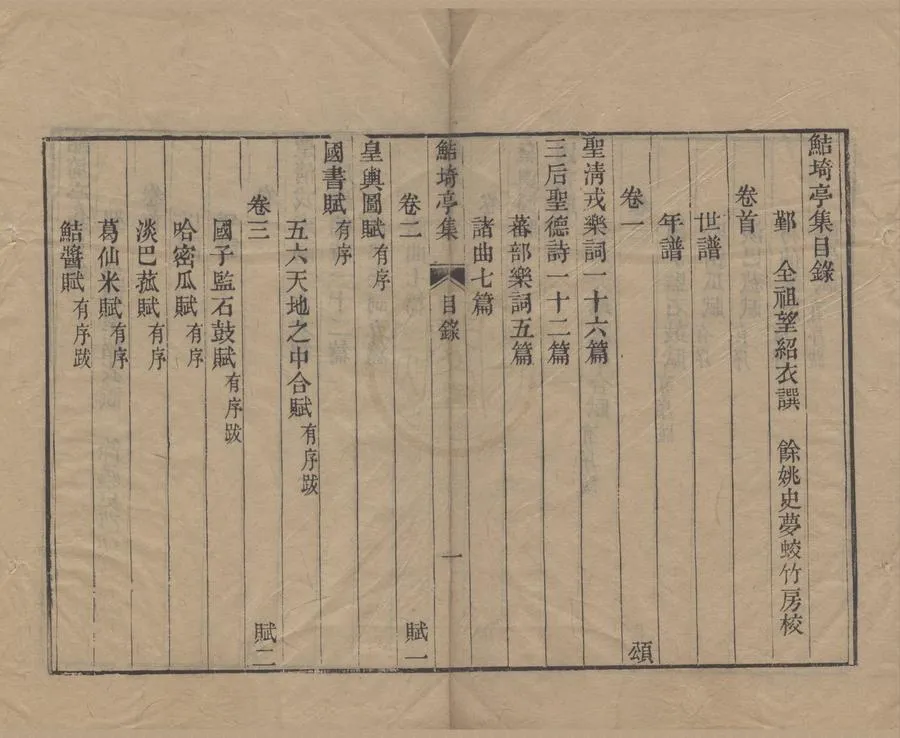 鮚埼亭集目錄
鄞 全祖望紹衣譔 餘姚史夢蛟竹房校
卷首
世譜
年譜
卷一 頌
聖清戎樂詞一十六篇
三后聖德詩一十二篇
蕃部樂詞五篇
諸曲七篇
鮚埼亭集 目錄 一
卷二 賦一
皇輿圖賦有序
國書賦有序
五六天地之中合賦有序跋
卷三 賦二
國子監石鼓賦有序跋
哈密瓜賦有序
淡巴菰賦有序
葛仙米賦有序
鮚醬賦有序跋